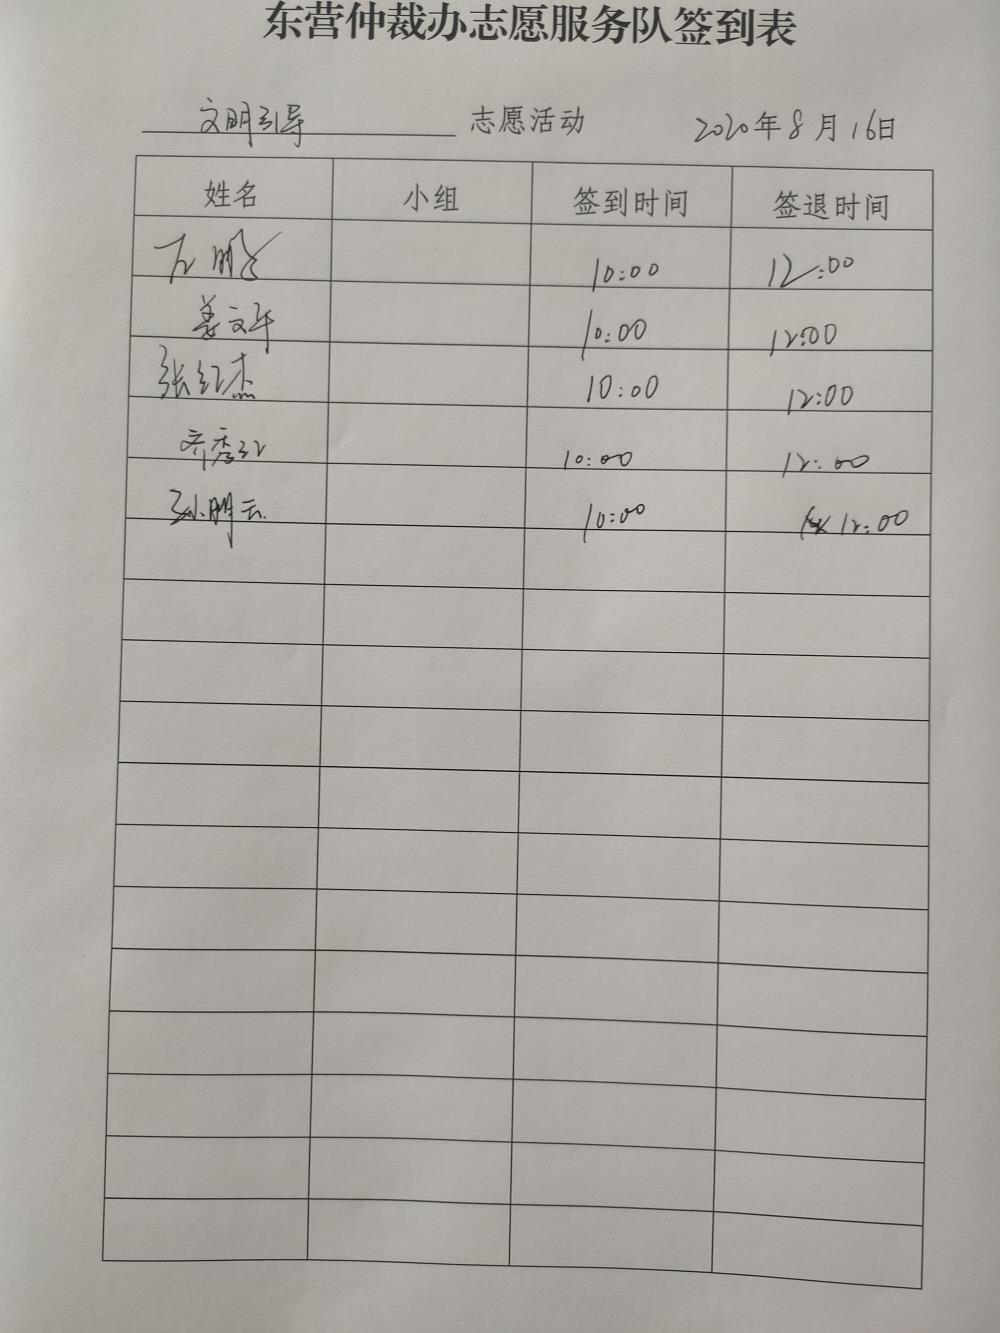 东营仲裁办志愿服务队签到表
文明引导 志愿活动 2020年8月16日
姓名 小组 签到时间 签退时间
10:00 12:00
姜文午 10:00 12:00
张红杰 10:00 12:00
齐秀红 10:00 12:00
孙明云 10:00 12:00